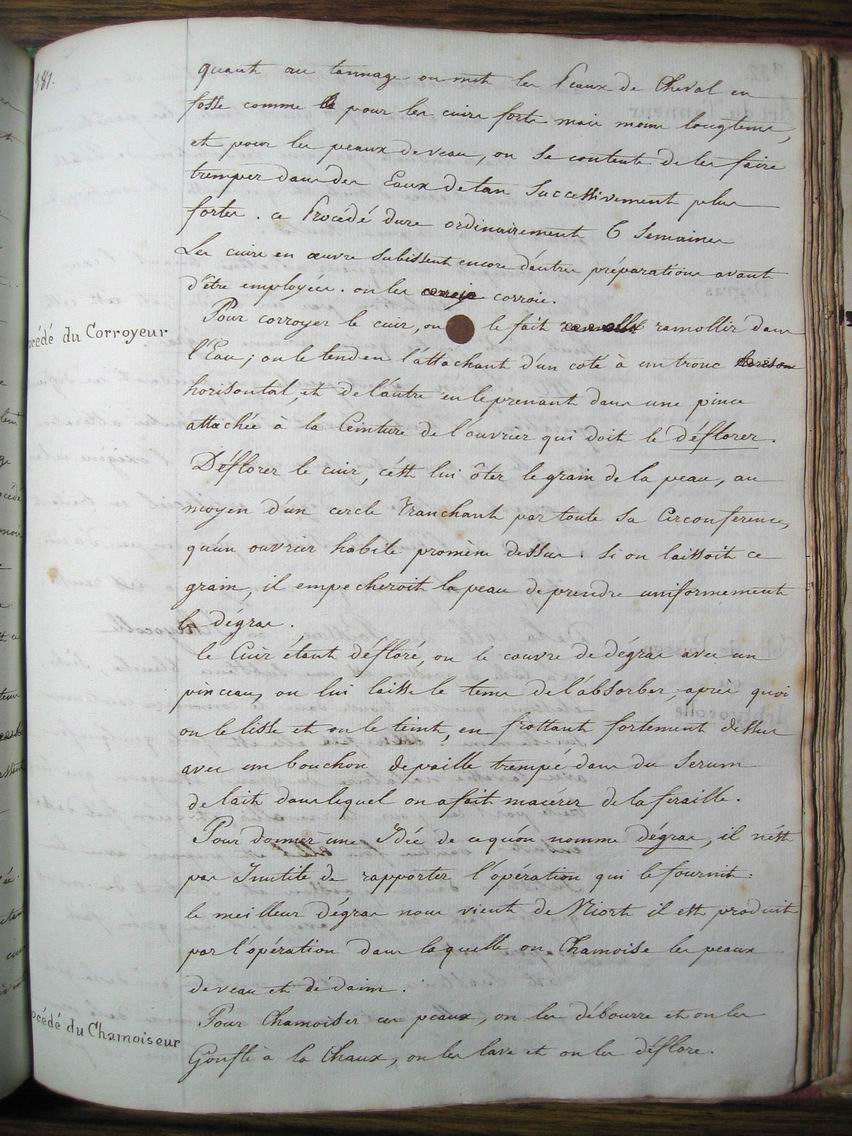 381.
quant au tannage on met les Peaux de Cheval en
fosse comme pour les cuirs forts mais moins longtems,
et pour les peaux de veau, on se contente de les faire
tremper dans des Eaux de tan Successivement plus
fortes. ce Procédé dure ordinairement 6 Semaines
Les cuirs en œuvre subissent encore d'autres préparations avant
d'être employés. on les corroie.
océdé du Corroyeur
Pour corroyer le cuir, on le fait ramollir dans
l'Eau; on le tend en l'attachant d'un coté à un tronc
horisontal, et de l'autre en le prenant dans une pince
attachée à la Ceinture de l'ouvrier qui doit le déflorer.
Déflorer le cuir, c'est lui ôter le grain de la peau, au
moyen d'un cercle Tranchant par toute sa Circonference,
qu'un ouvrier habile promène dessus. si on laissoit ce
grain, il empecheroit la peau de prendre uniformement
le dégras.
le Cuir étant défloré, on le couvre de dégras avec un
pinceau, on lui laisse le tems de l'absorber, après quoi
on le lisse et on le teint, en frottant fortement dessus
avec un bouchon de paille trempé dans du Serum
de lait dans lequel on a fait macérer de la feraille.
Pour donner une Idée de ce qu'on nomme dégras, il n'est
pas Inutile de rapporter l'opération qui le fournit:
le meilleur dégras nous vient de Niort il est produit
par l'opération dans laquelle on Chamoise les peaux
de veau et de daim.
océdé du Chamoiseur
Pour Chamoiser ces peaux, on les débourre et on les
Gonfle à la Chaux, on les lave et on les déflore.